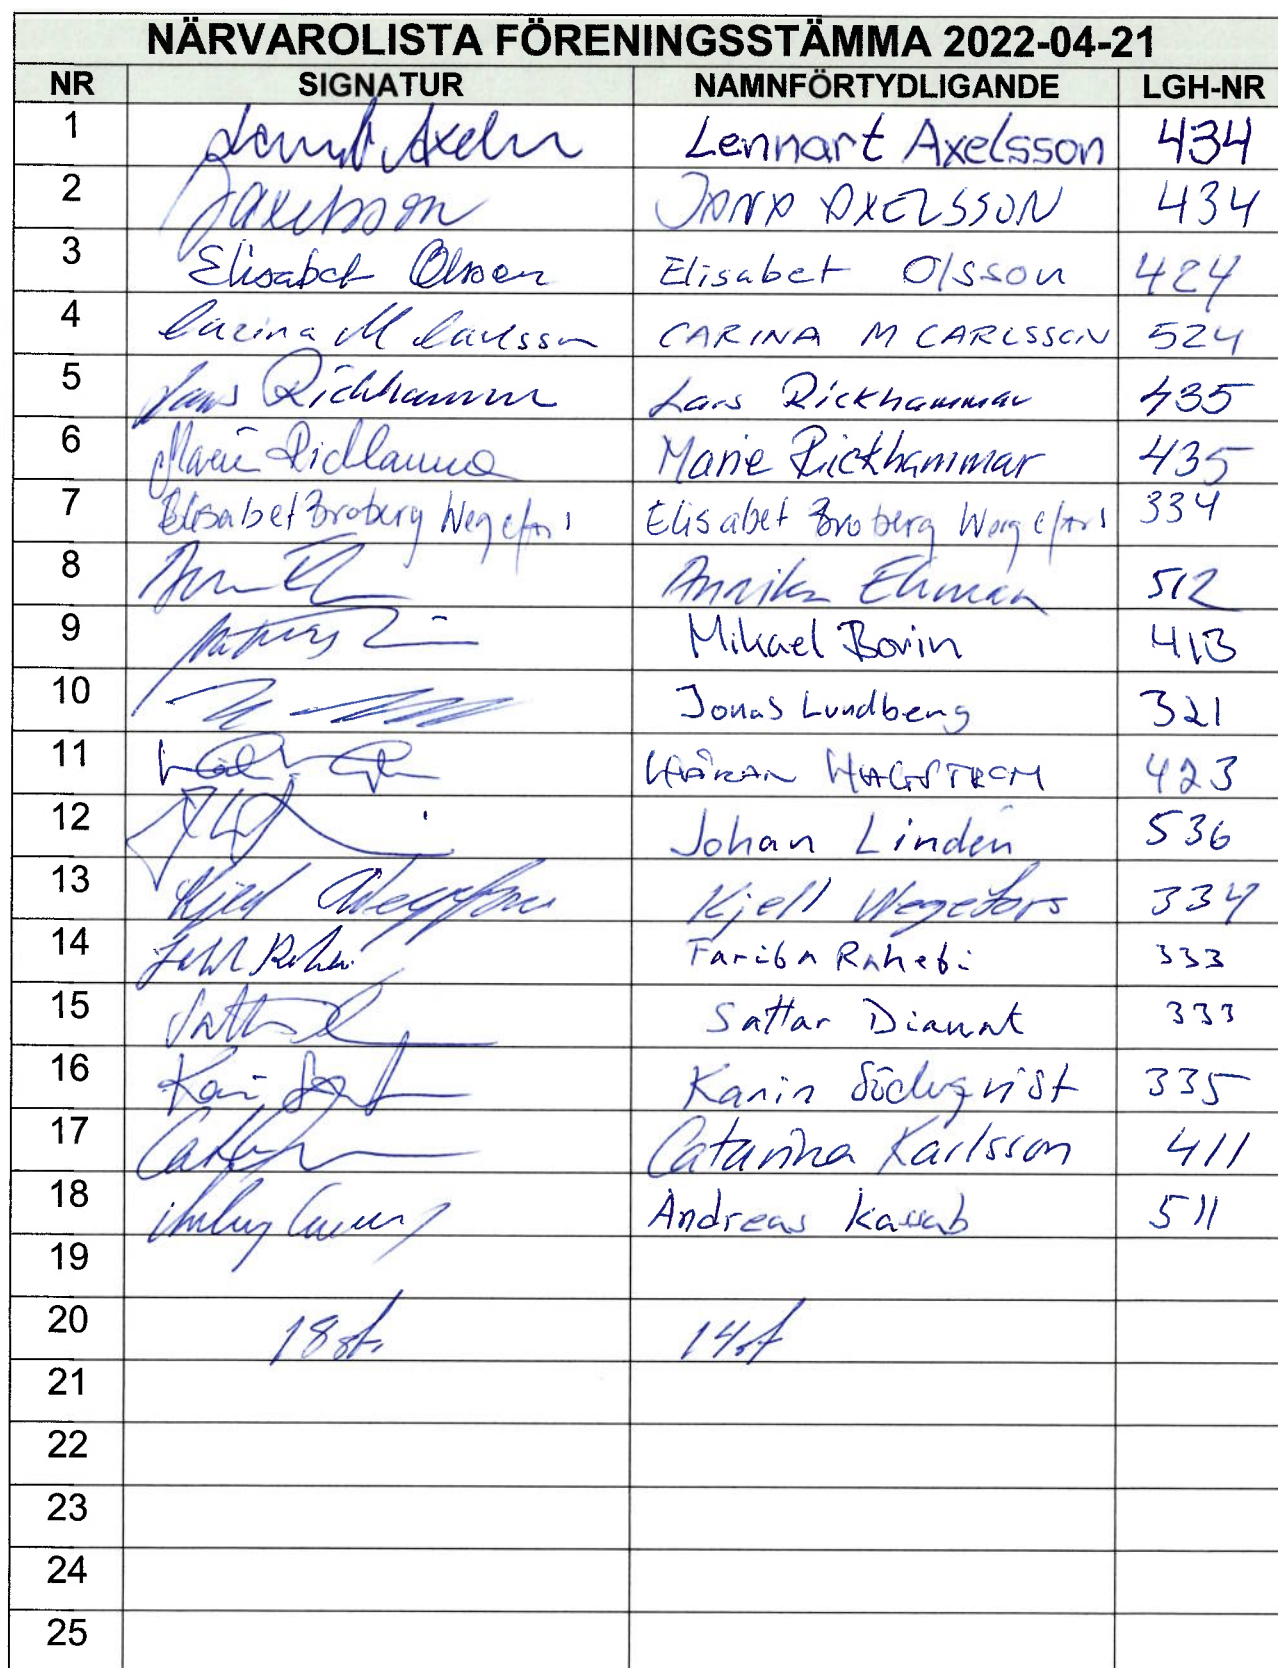 NÄRVAROLISTA FÖRENINGSSTÄMMA 2022-04-21
NR SIGNATUR NAMNFÖRTYDLIGANDE LGH-NR
1 Lennart Axelsson 434
2 Jaxelsson JANA AXELSSON 434
3 Elisabet Olsson Elisabet Olsson 424
4 Carina M Carlsson CARINA M CARLSSON 524
5 Lars Rickhammar Lars Rickhammar 435
6 Marie Rickhammar Marie Rickhammar 435
7 Elisabet Broberg Wegefors Elisabet Broberg Wegefors 334
8 Annika Ehman 512
9 Mikael Borin 413
10 Jonas Lundberg 321
11 HÅKAN HAGSTRÖM 423
12 Johan Lindén 536
13 Kjell Wegefors Kjell Wegefors 334
14 Fariba Rahebi 333
15 Sattar Dianat 333
16 Karin Söderqvist 335
17 Catarina Karlsson 411
18 Andreas Kassab 511
19
20 18 st. 14 st
21
22
23
24
25